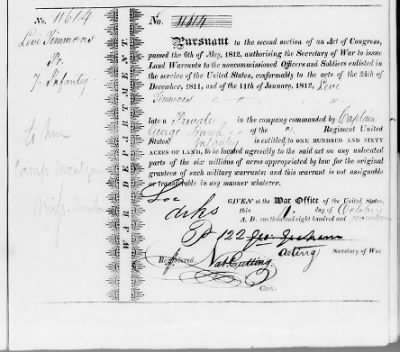 No. 11614
Leve Timmons
Pr.
7. Infantry
to him
WAR DEPARTMENT
No. 11614
Pursuant to the second section of an Act of Congress,
passed the 6th of May, 1812, authorising the Secretary of War to issue
Land Warrants to the noncommissioned Officers and Soldiers enlisted in
the service of the United States, conformably to the acts of the 24th of
December, 1811, and of the 11th of January, 1812, Leve
Timmons
late a Private in the company commanded by Captain
George of the 7 Regiment United
States' Infantry is entitled to ONE HUNDRED AND SIXTY
ACRES OF LAND, to be located agreeably to the said act on any unlocated
parts of the six millions of acres appropriated by law for the original
grantees of such military warrants; and this warrant is not assignable
or transferable in any manner whatever.
GIVEN at the War Office of the United States,
this day of October
A. D. one thousand eight hundred and
Loc
arks
P 122 Geo: Graham
Acting Secretary of War.
Registered. Nat Cutting
Clerk.